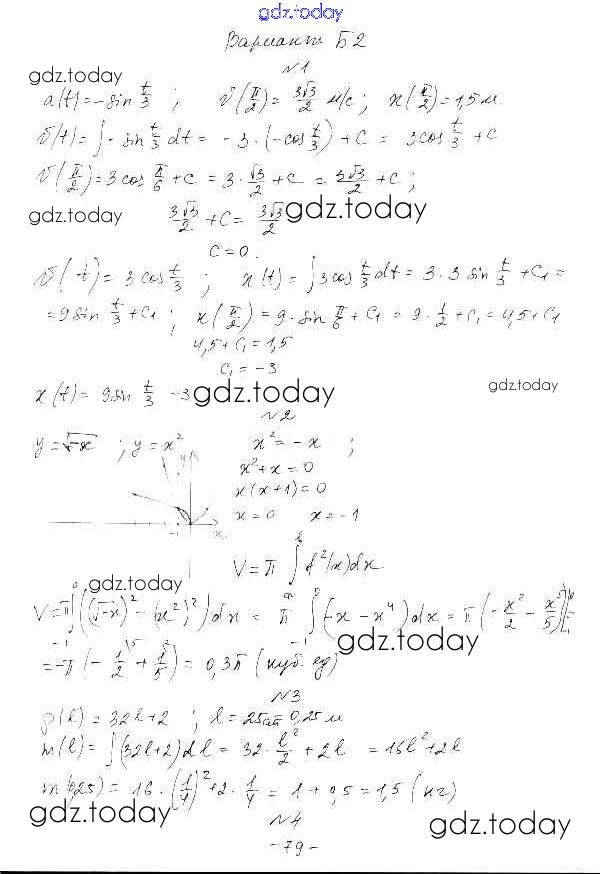 gdz.today
Вариант Б2
№1
gdz.today
a(t) = -sin t/3 ; v(π/2) = 3√3/2 м/с ; x(π/2) = 1,5 м.
v(t) = ∫ - sin t/3 dt = -3 · (-cos t/3) + C = 3cos t/3 + C
v(π/2) = 3 cos π/6 + C = 3 · √3/2 + C = 3√3/2 + C ;
gdz.today
3√3/2 + C = 3√3/2
gdz.today
C = 0.
v(t) = 3 cos t/3 ; x(t) = ∫ 3 cos t/3 dt = 3 · 3 sin t/3 + C₁ =
= 9 sin t/3 + C₁ ; x(π/2) = 9 · sin π/6 + C₁ = 9 · 1/2 + C₁ = 4,5 + C₁
4,5 + C₁ = 1,5
C₁ = -3
x(t) = 9 sin t/3 - 3
gdz.today
gdz.today
№2
y = √-x ; y = x² x² = -x ;
x² + x = 0
x(x + 1) = 0
x = 0 x = -1
y
-1
x
V = π ∫ₐᵇ f²(x)dx.
gdz.today
V = π ∫₋₁⁰ ((√-x)² - (x²)²) dx = π ∫₋₁⁰ (-x - x⁴) dx = π (-x²/2 - x⁵/5)|₋₁⁰
gdz.today
= -π (-1/2 + 1/5) = 0,3π (куб. ед)
№3
ρ(l) = 32l + 2 ; l = 25см = 0,25 м
m(l) = ∫ (32l + 2) dl = 32 · l²/2 + 2l = 16l² + 2l
m(0,25) = 16 · (1/4)² + 2 · 1/4 = 1 + 0,5 = 1,5 (кг)
gdz.today
gdz.today
№4
- 79 -